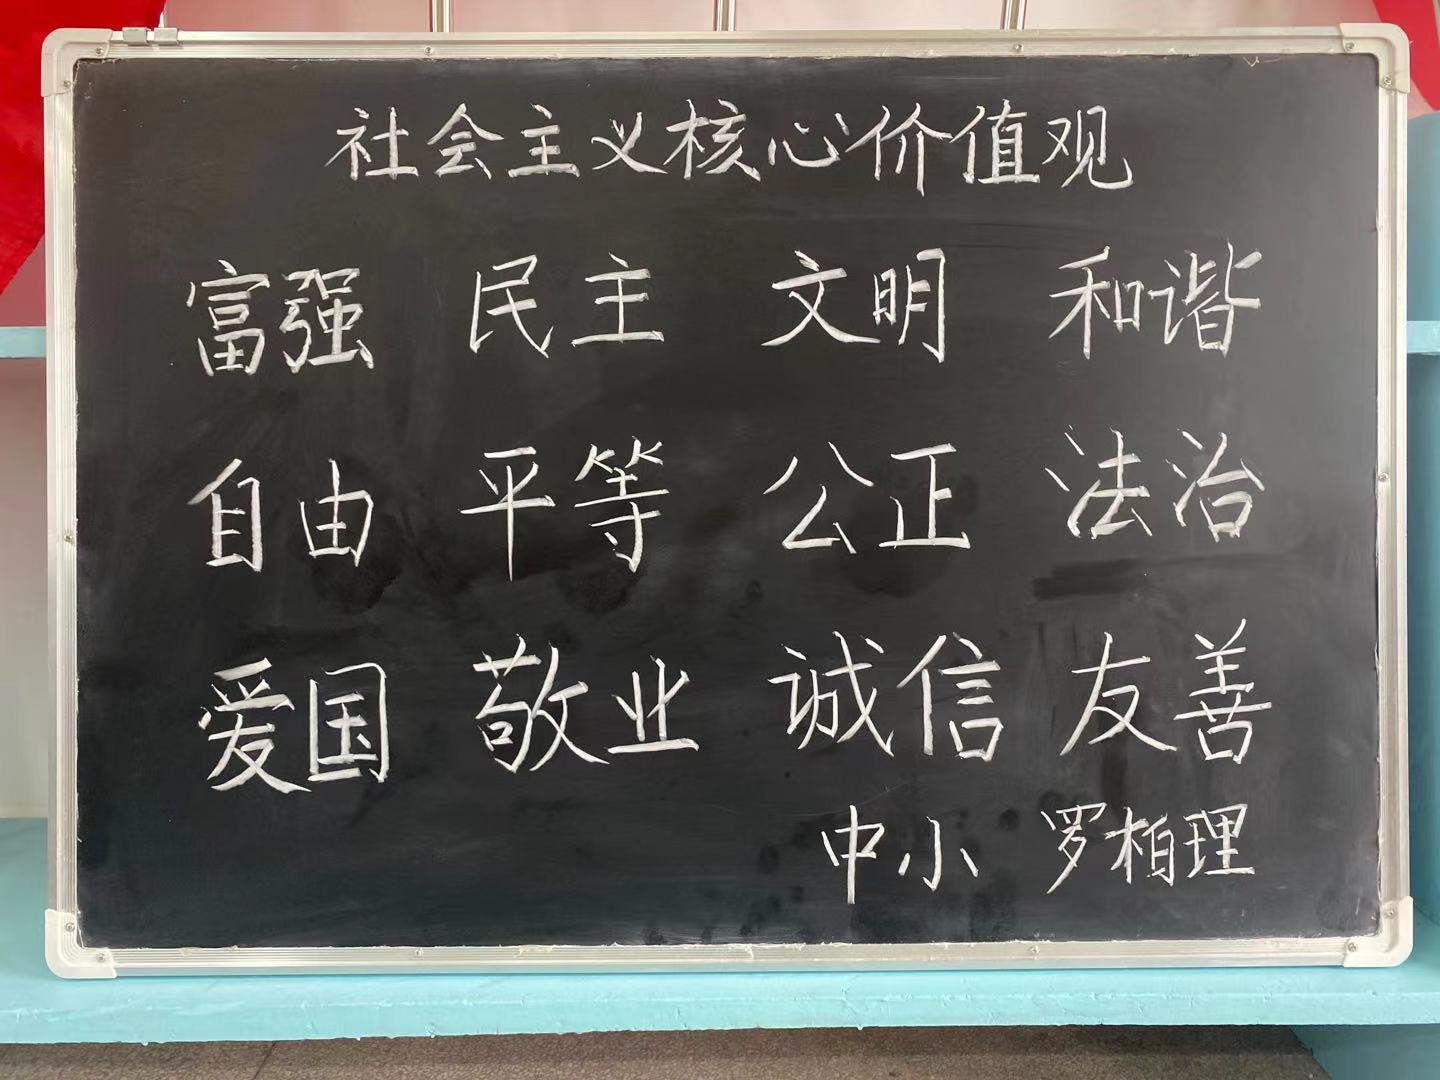 社会主义核心价值观
富强 民主 文明 和谐
自由 平等 公正 法治
爱国 敬业 诚信 友善
中小 罗柏理